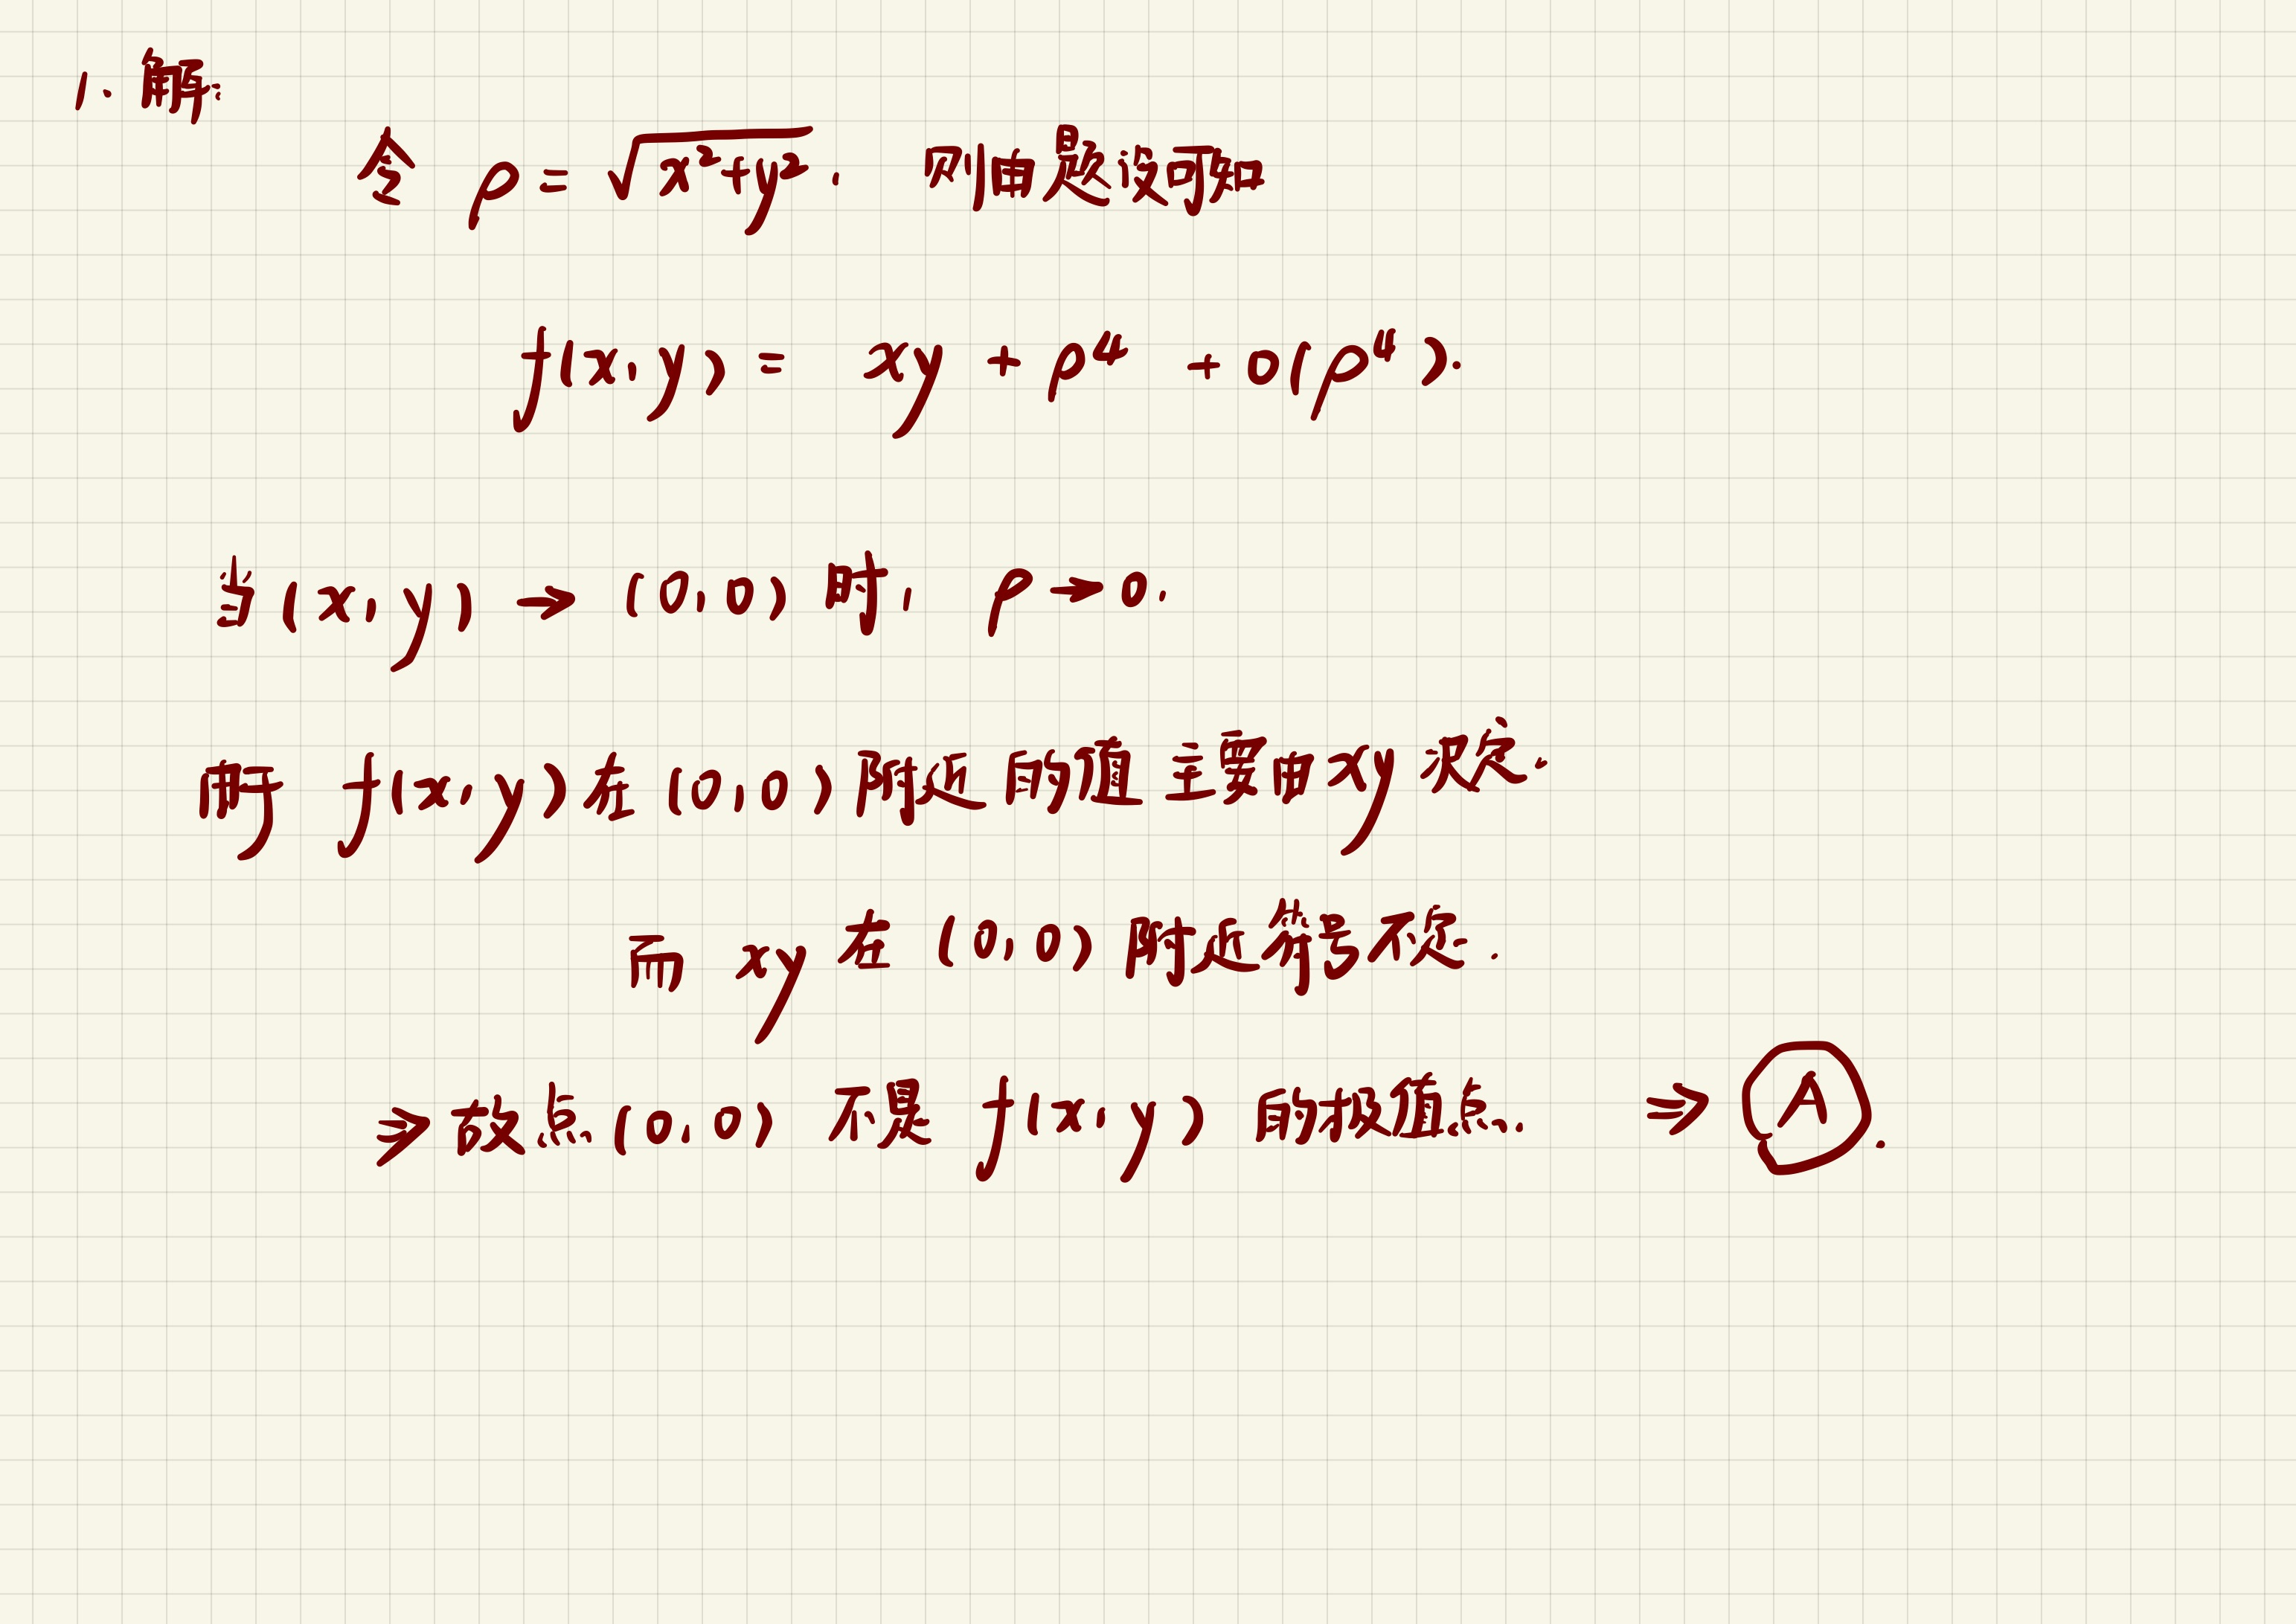 1. 解:
令 ρ = √(x²+y²). 则由题设可知
f(x,y) = xy + ρ⁴ + o(ρ⁴).
当(x,y) → (0,0) 时, ρ → 0.
由于 f(x,y) 在 (0,0) 附近的值主要由xy决定.
而 xy 在 (0,0) 附近符号不定.
⇒ 故点(0,0) 不是 f(x,y) 的极值点. ⇒ A.